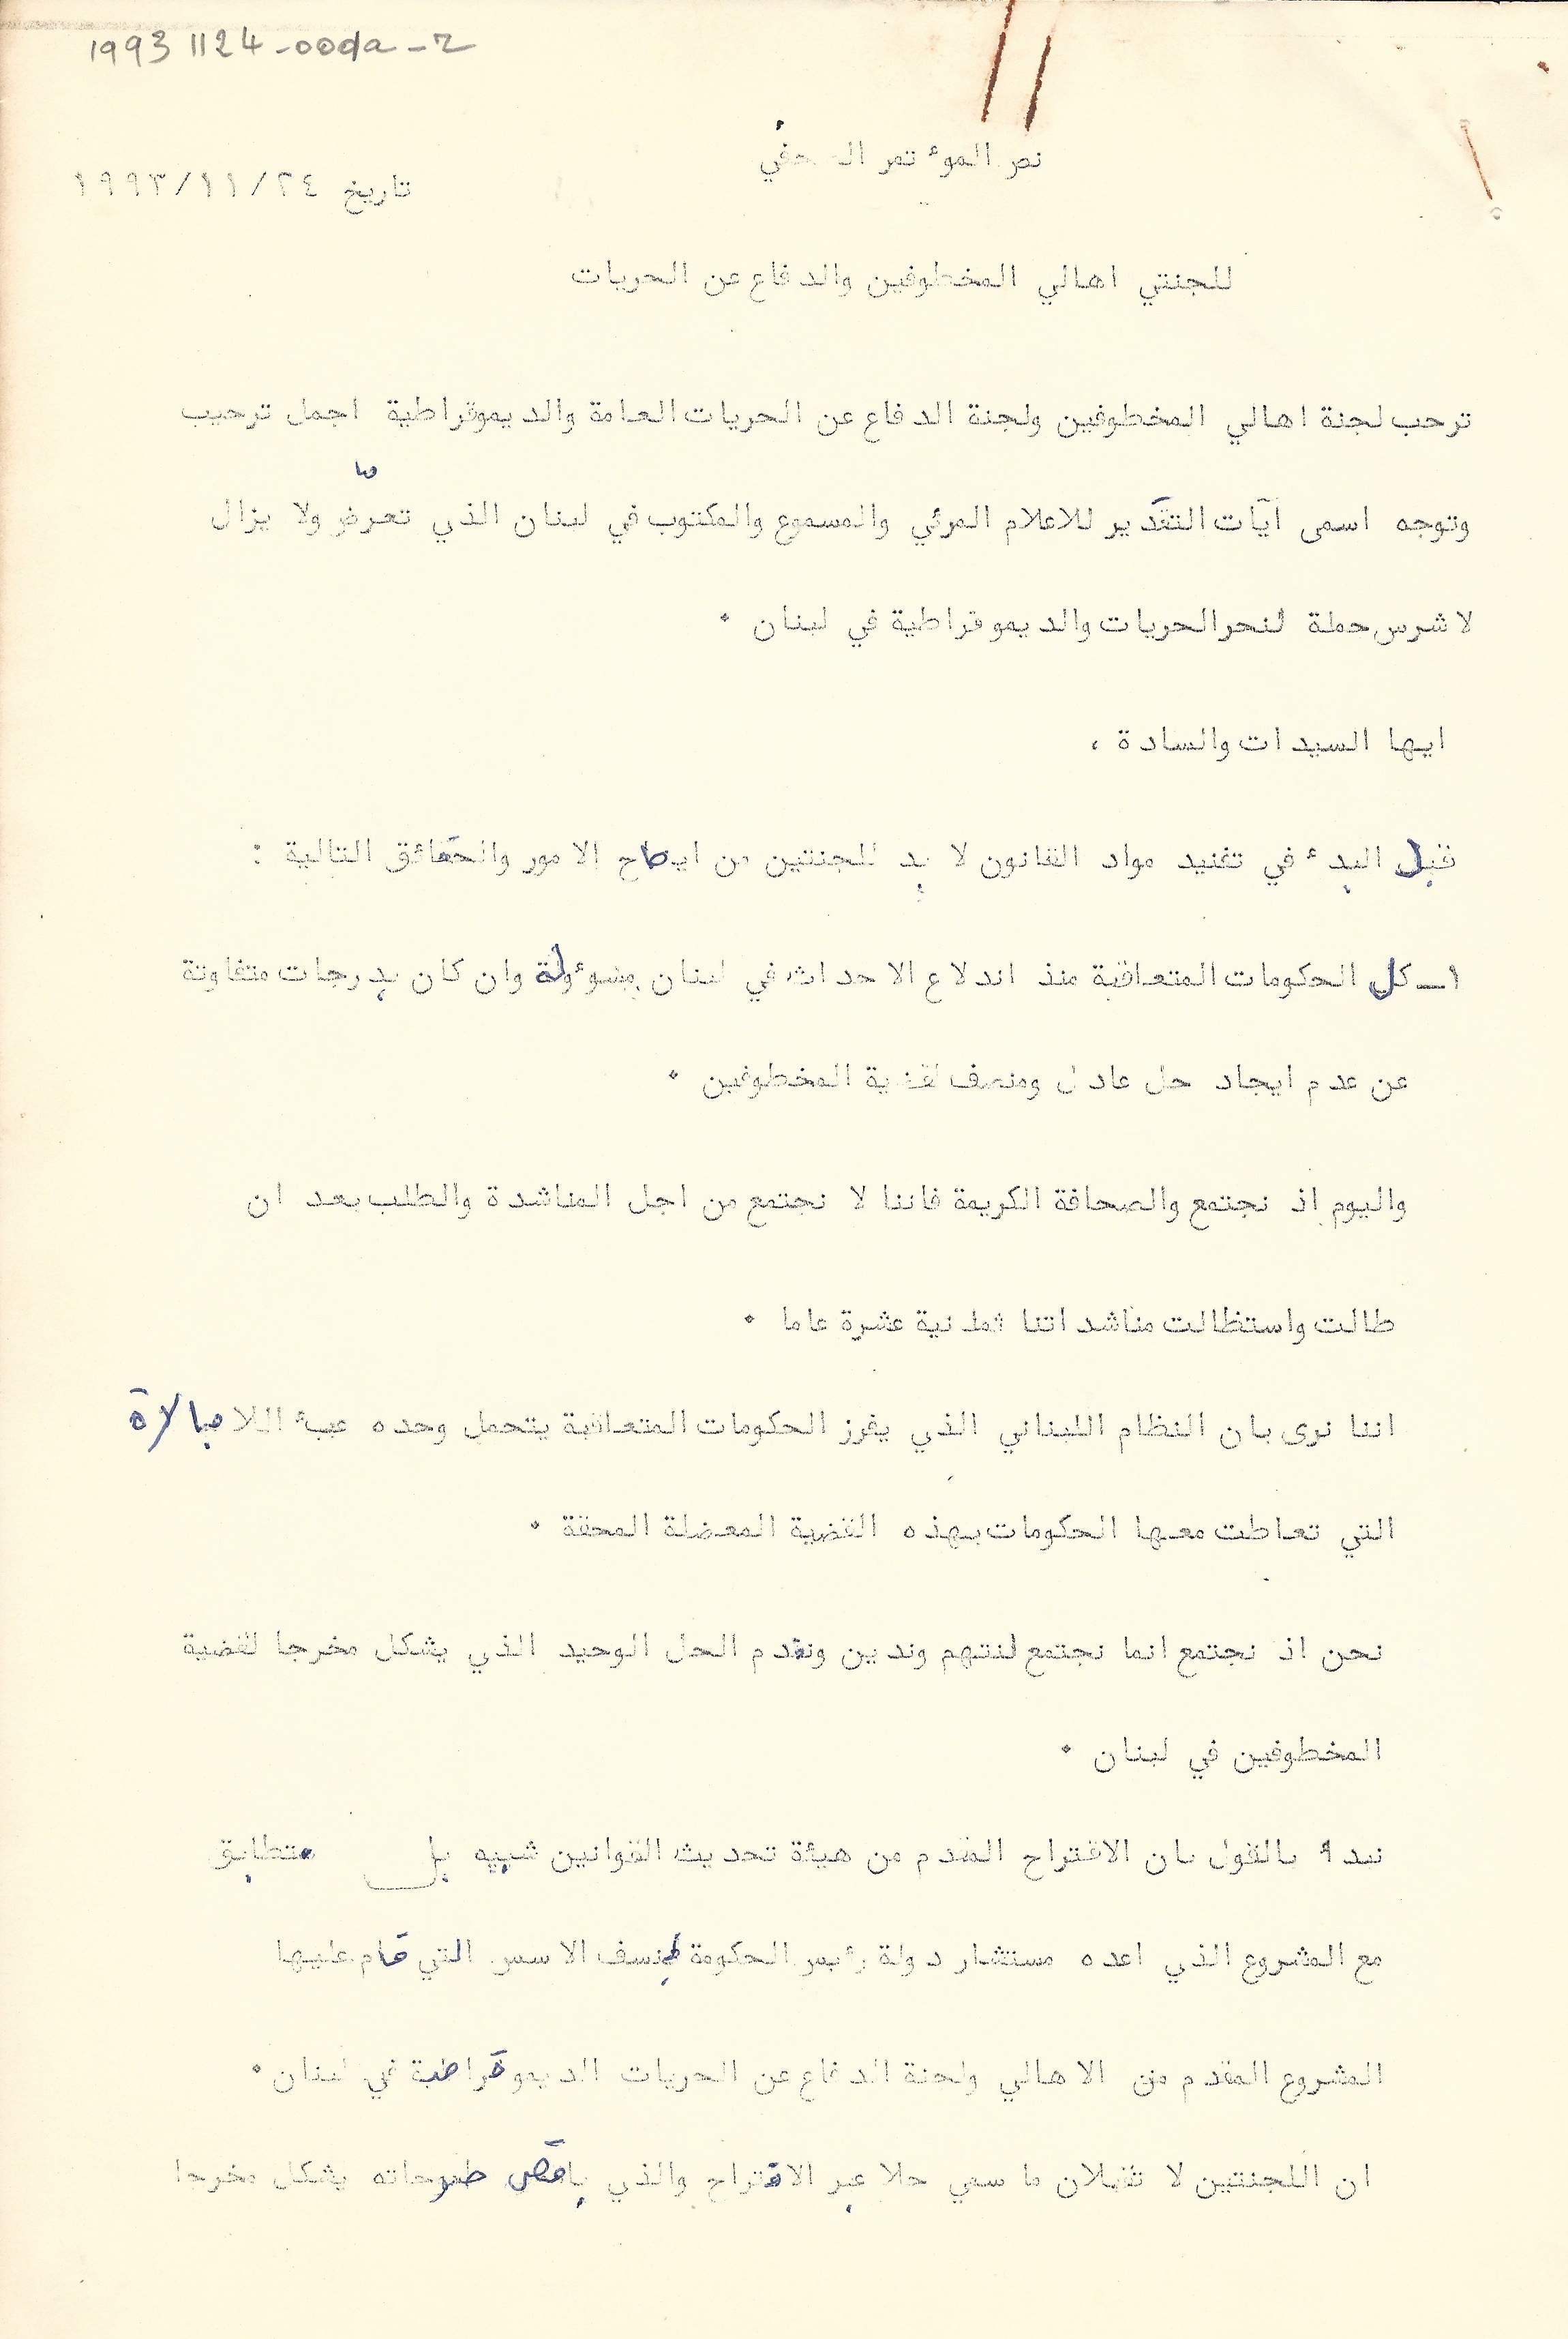 19931124-00da-2
نص المؤتمر الصحفي
تاريخ ١٩٩٣/١١/٢٤
للجنتي اهالي المخطوفين والدفاع عن الحريات
ترحب لجنة اهالي المخطوفين ولجنة الدفاع عن الحريات العامة والديموقراطية اجمل ترحيب
وتوجه اسمى آيات التقدير للاعلام المرئي والمسموع والمكتوب في لبنان الذي تعرّض ولا يزال
لاشرس حملة لنحر الحريات والديموقراطية في لبنان .
ايها السيدات والسادة ،
قبل البدء في تفنيد مواد القانون لا بد للجنتين من ايضاح الامور والحقائق التالية :
١ـ كل الحكومات المتعاقبة منذ اندلاع الاحداث في لبنان مسوءولة وان كان بدرجات متفاوتة
عن عدم ايجاد حل عادل ومنصف لقضية المخطوفين .
واليوم اذ نجتمع والصحافة الكريمة فاننا لا نجتمع من اجل المناشدة والطلب بعد ان
طالت واستطالت مناشداتنا ثمانية عشرة عاما .
اننا نرى بان النظام اللبناني الذي يفرز الحكومات المتعاقبة يتحمل وحده عبء اللامبالاة
التي تعاطت معها الحكومات بهذه القضية المعضلة المحقة .
نحن اذ نجتمع انما نجتمع لنتهم وندين ونقدم الحل الوحيد الذي يشكل مخرجا لقضية
المخطوفين في لبنان .
نبدأ بالقول بان الاقتراح المقدم من هيئة تحديث القوانين شبيه بل متطابق
مع المشروع الذي اعده مستشار دولة رئيس الحكومة لينسف الاسس التي قام عليها
المشروع المقدم من الاهالي ولجنة الدفاع عن الحريات الديموقراطية في لبنان .
ان اللجنتين لا تقبلان ما سمي حلا عبر الاقتراح والذي باقصى طموحاته يشكل مخرجا